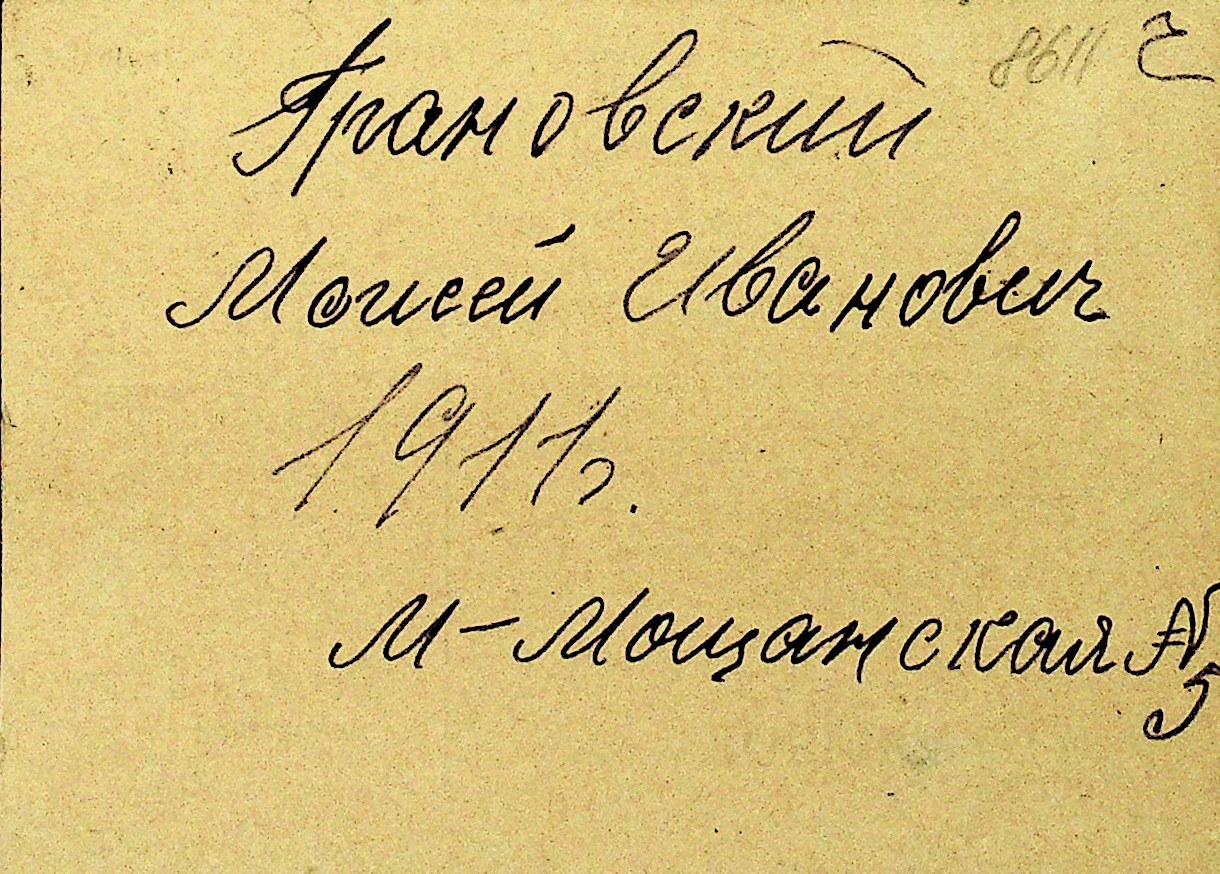 8611
Грановский
Моисей Иванович
1911г.
М-Мощанская №
5